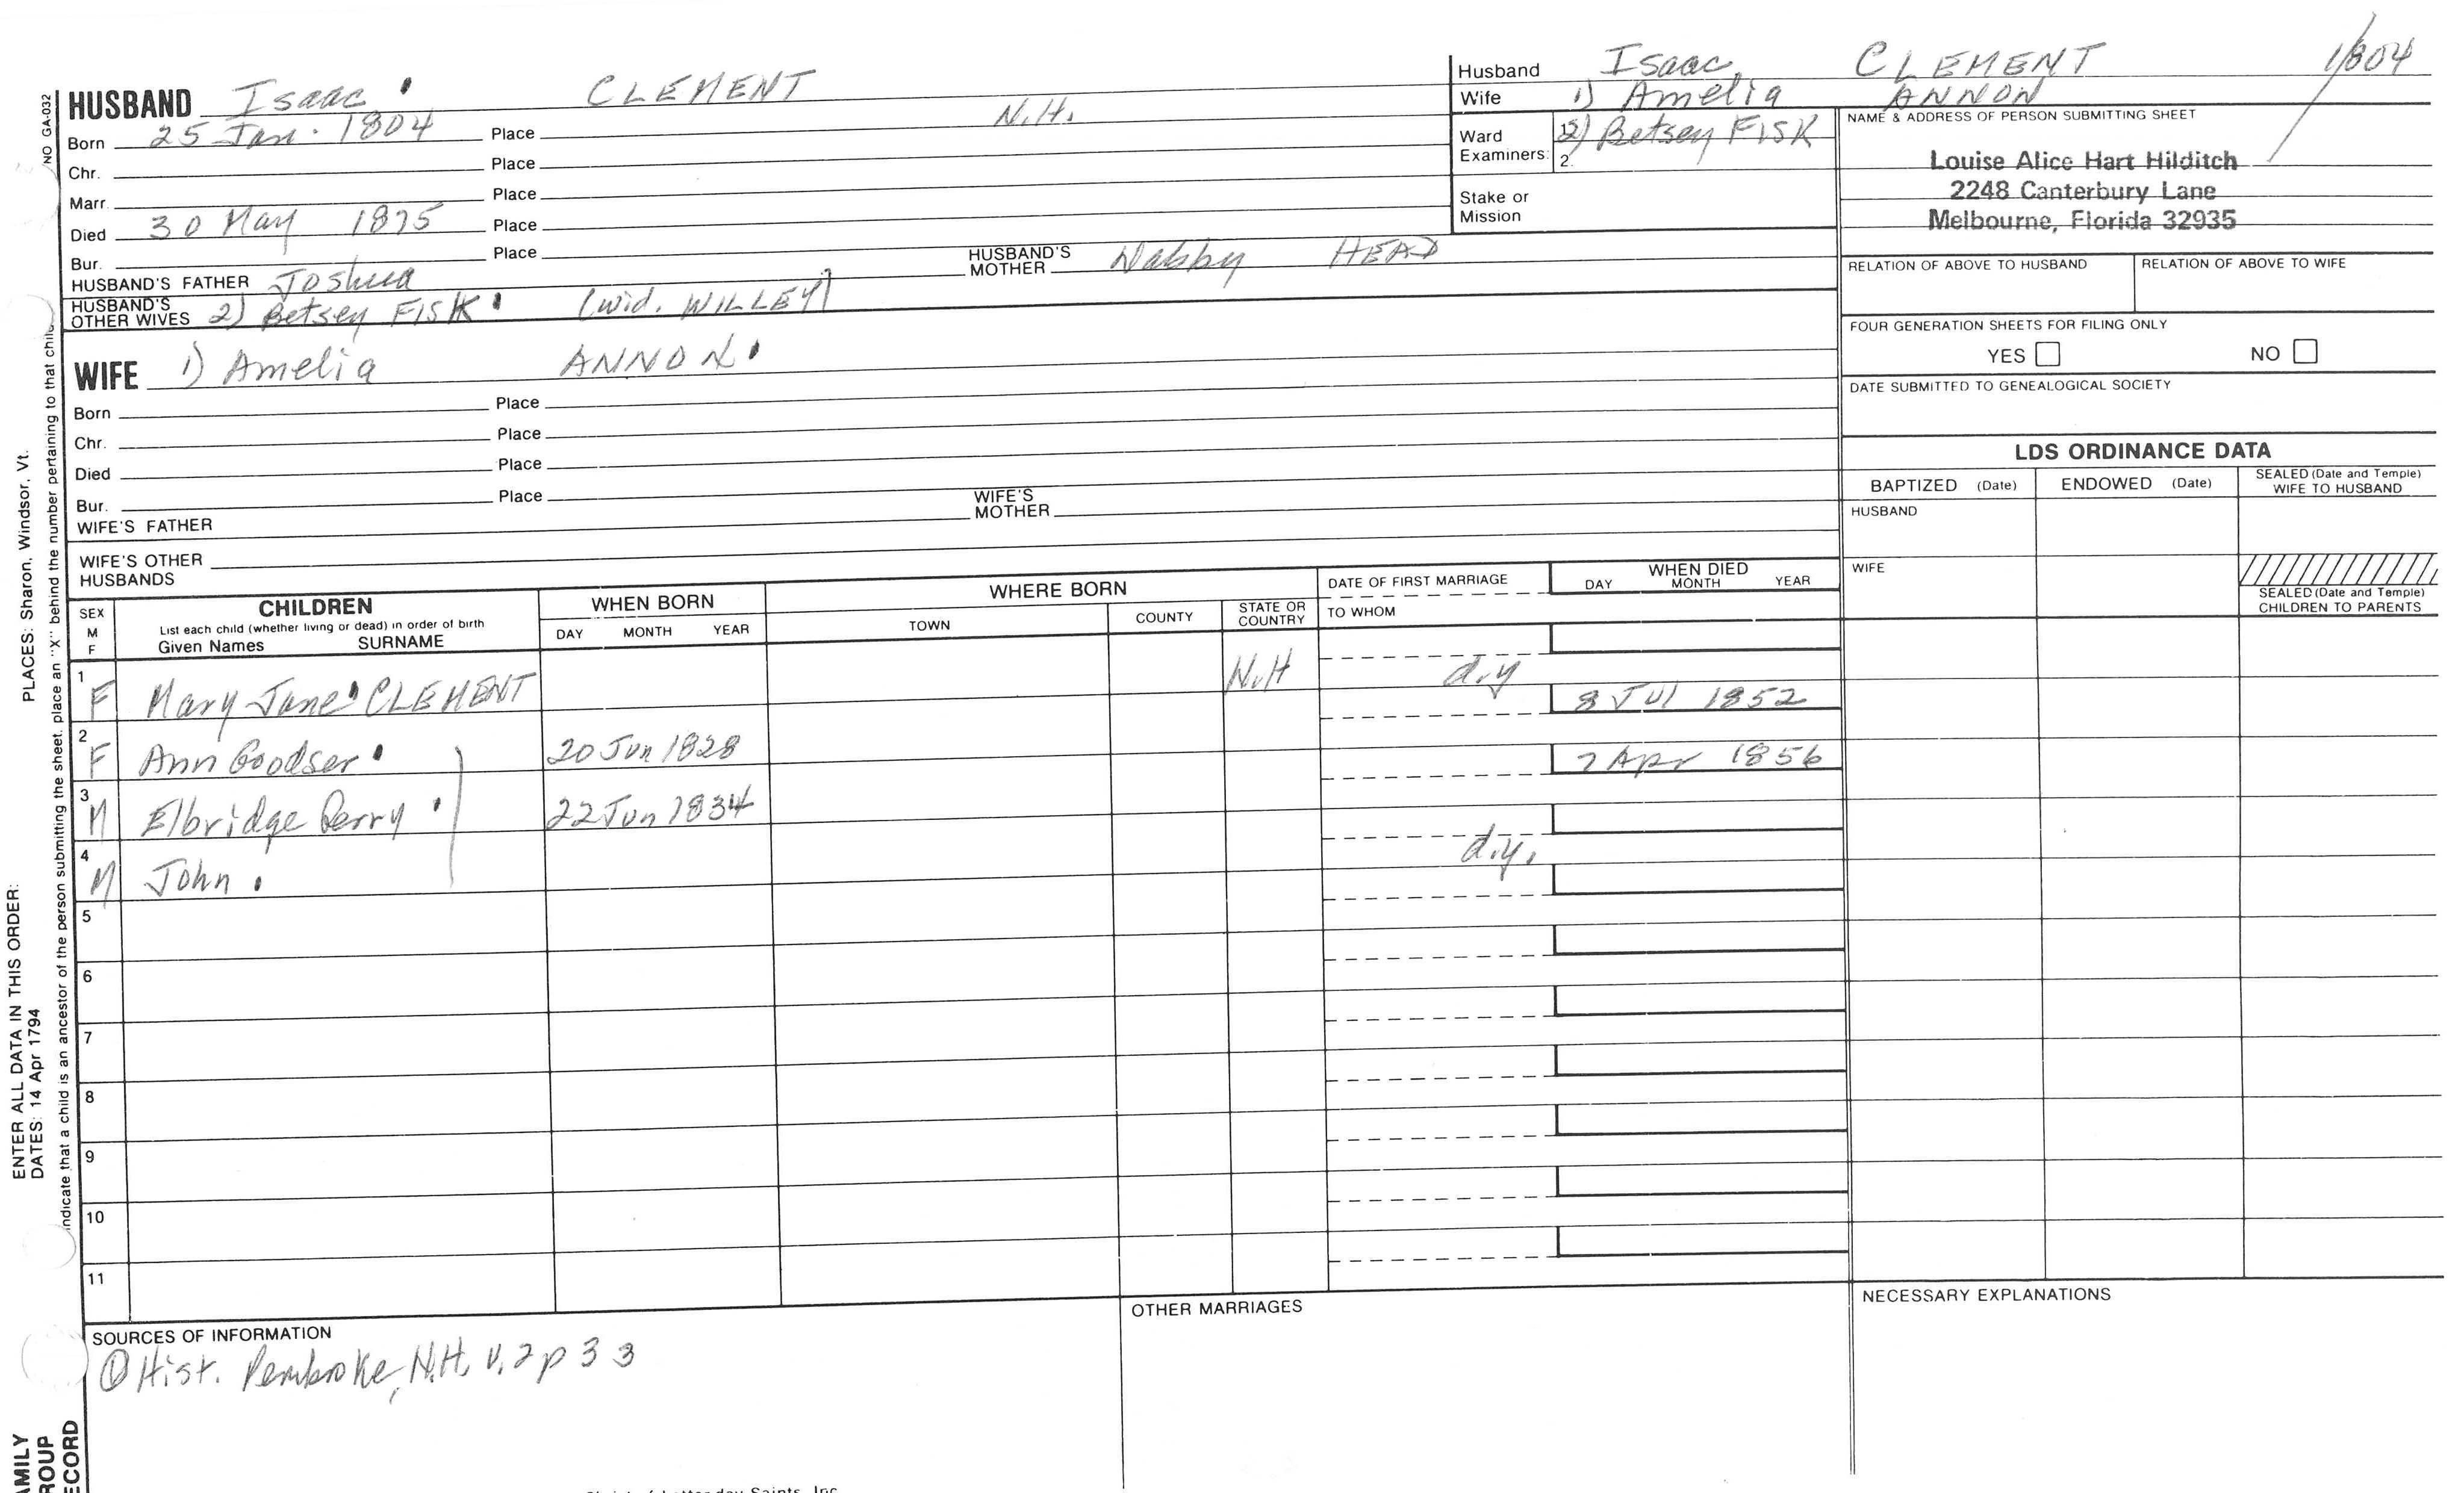 HUSBAND Isaac CLEMENT
Born 25 Jan. 1804 Place N.H.
Chr. Place
Marr. Place
Died 30 May 1875 Place
Bur. Place
HUSBAND'S FATHER Joshua HUSBAND'S MOTHER Nabby HEAD
HUSBAND'S OTHER WIVES 2) Betsey FISK (wid. WILLEY)
WIFE 1) Amelia ANNON
Born Place
Chr. Place
Died Place
Bur. Place
WIFE'S FATHER WIFE'S MOTHER
WIFE'S OTHER HUSBANDS
Husband Isaac CLEMENT 1/804
Wife 1) Amelia ANNON
Ward Examiners: 1. 2) Betsey FISK
2.
Stake or Mission
NAME & ADDRESS OF PERSON SUBMITTING SHEET
Louise Alice Hart Hilditch
2248 Canterbury Lane
Melbourne, Florida 32935
RELATION OF ABOVE TO HUSBAND RELATION OF ABOVE TO WIFE
FOUR GENERATION SHEETS FOR FILING ONLY
YES NO
DATE SUBMITTED TO GENEALOGICAL SOCIETY
LDS ORDINANCE DATA
BAPTIZED (Date) ENDOWED (Date) SEALED (Date and Temple) WIFE TO HUSBAND
HUSBAND
WIFE
SEALED (Date and Temple) CHILDREN TO PARENTS
SEX M F
CHILDREN
List each child (whether living or dead) in order of birth
Given Names SURNAME
WHEN BORN
DAY MONTH YEAR
WHERE BORN
TOWN COUNTY STATE OR COUNTRY
DATE OF FIRST MARRIAGE
TO WHOM
WHEN DIED
DAY MONTH YEAR
1 F Mary Jane CLEMENT N.H d.y
2 F Ann Goodser 20 Jun 1828 8 JUl 1852
3 M Elbridge Perry 22 Jun 1834 7 Apr 1856
4 M John d.y.
5
6
7
8
9
10
11
SOURCES OF INFORMATION
① Hist. Pembroke, N.H. v.2 p 33
OTHER MARRIAGES
NECESSARY EXPLANATIONS
NO GA-032
ENTER ALL DATA IN THIS ORDER:
DATES: 14 Apr 1794
PLACES: Sharon, Windsor, Vt.
indicate that a child is an ancestor of the person submitting the sheet, place an "X" behind the number pertaining to that child